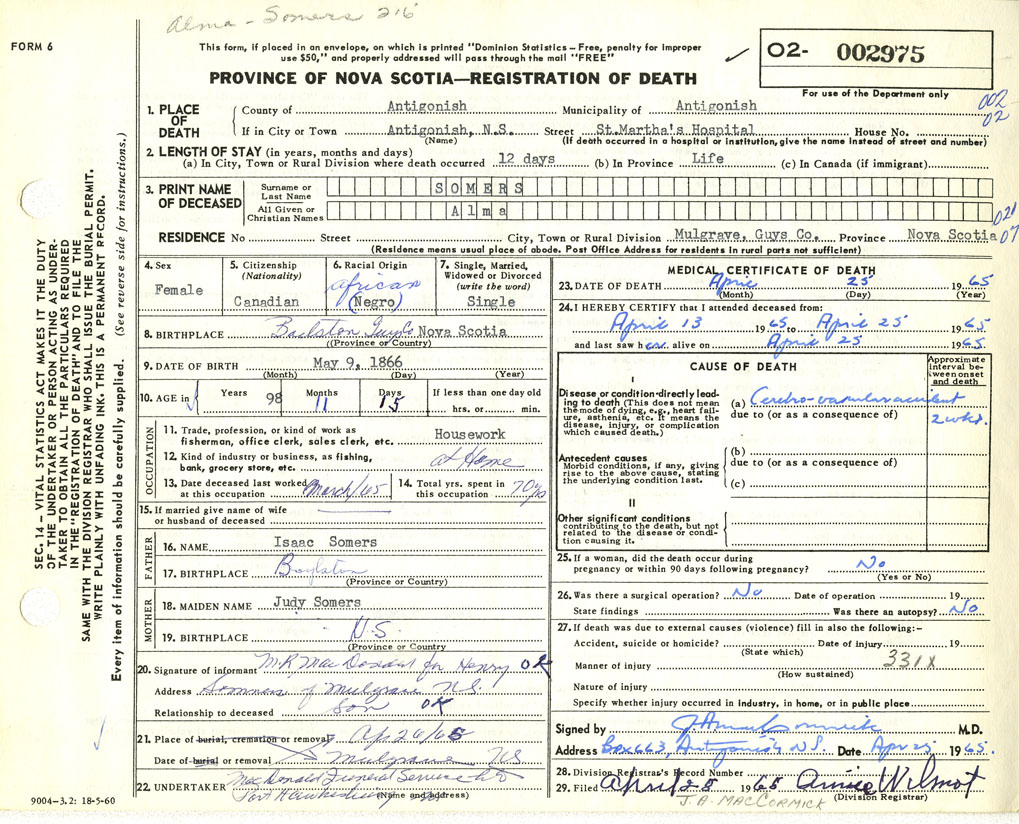 Alma - Somers 216
FORM 6
This form, if placed in an envelope, on which is printed "Dominion Statistics – Free, penalty for improper
use $50," and properly addressed will pass through the mail "FREE"
✓
O2- 002975
For use of the Department only
PROVINCE OF NOVA SCOTIA—REGISTRATION OF DEATH
002
02
1. PLACE OF DEATH
County of Antigonish Municipality of Antigonish
If in City or Town Antigonish, N.S. Street St.Martha's Hospital House No.
(Name) (If death occurred in a hospital or institution, give the name instead of street and number)
2. LENGTH OF STAY (in years, months and days)
(a) In City, Town or Rural Division where death occurred 12 days (b) In Province Life (c) In Canada (if immigrant)
3. PRINT NAME OF DECEASED
Surname or Last Name SOMERS
All Given or Christian Names Alma
021
07
RESIDENCE No Street City, Town or Rural Division Mulgrave, Guys Co. Province Nova Scotia
(Residence means usual place of abode. Post Office Address for residents in rural parts not valid)
4. Sex
Female
5. Citizenship
(Nationality)
Canadian
6. Racial Origin
African
(Negro)
7. Single, Married, Widowed or Divorced
(write the word)
Single
8. BIRTHPLACE Guys Co Nova Scotia
(Province or Country)
9. DATE OF BIRTH May 9, 1866
(Month) (Day) (Year)
10. AGE in
Years 98
Months 11
Days 15
If less than one day old
hrs. or min.
OCCUPATION
11. Trade, profession, or kind of work as
fisherman, office clerk, sales clerk, etc. Housework
12. Kind of industry or business, as fishing,
bank, grocery store, etc. at Home
13. Date deceased last worked
at this occupation March/65
14. Total yrs. spent in
this occupation 70 yrs
15. If married give name of wife
or husband of deceased
FATHER
16. NAME Isaac Somers
17. BIRTHPLACE Boylston
(Province or Country)
MOTHER
18. MAIDEN NAME Judy Somers
19. BIRTHPLACE N.S.
(Province or Country)
20. Signature of informant M.R. MacDonald for Henry OK
Address Sommers of Mulgrave N.S.
Relationship to deceased Son OK
21. Place of burial, cremation or removal Ap 26/65
Date of burial or removal Mulgrave NS
22. UNDERTAKER MacDonald Funeral Service Ltd
Port Hawkesbury
(Name and address)
MEDICAL CERTIFICATE OF DEATH
23. DATE OF DEATH April 25 1965
(Month) (Day) (Year)
24. I HEREBY CERTIFY that I attended deceased from:
April 13 1965 to April 25 1965
and last saw her alive on April 25 1965.
CAUSE OF DEATH
Approximate interval between onset and death
I
Disease or condition directly leading to death (This does not mean the mode of dying, e.g., heart failure, asthenia, etc. It means the disease, injury, or complication which caused death.)
(a) Cerebro-vascular accident
due to (or as a consequence of) 2 wks.
Antecedent causes
Morbid conditions, if any, giving rise to the above cause, stating the underlying condition last.
(b)
due to (or as a consequence of)
(c)
II
Other significant conditions
contributing to the death, but not related to the disease or condition causing it.
25. If a woman, did the death occur during
pregnancy or within 90 days following pregnancy? No
(Yes or No)
26. Was there a surgical operation? No Date of operation 19
State findings Was there an autopsy? No
27. If death was due to external causes (violence) fill in also the following:-
Accident, suicide or homicide? Date of injury 19
(State which)
331X
Manner of injury
(How sustained)
Nature of injury
Specify whether injury occurred in industry, in home, or in public place
Signed by M.D.
Address Box 663, Antigonish N.S. Date Apr 25 1965.
28. Division Registrar's Record Number
29. Filed April 25 1965 Annie Wilmot
(Division Registrar)
J. A. MACCORMICK
9004–3.2: 18-5-60
SEC. 14 – VITAL STATISTICS ACT MAKES IT THE DUTY
OF THE UNDERTAKER OR PERSON ACTING AS UNDER-
TAKER TO OBTAIN ALL THE PARTICULARS REQUIRED
IN THE "REGISTRATION OF DEATH" AND TO FILE THE
SAME WITH THE DIVISION REGISTRAR WHO SHALL ISSUE THE BURIAL PERMIT.
WRITE PLAINLY WITH UNFADING INK. THIS IS A PERMANENT RECORD.
Every item of information should be carefully supplied. (See reverse side for instructions.)